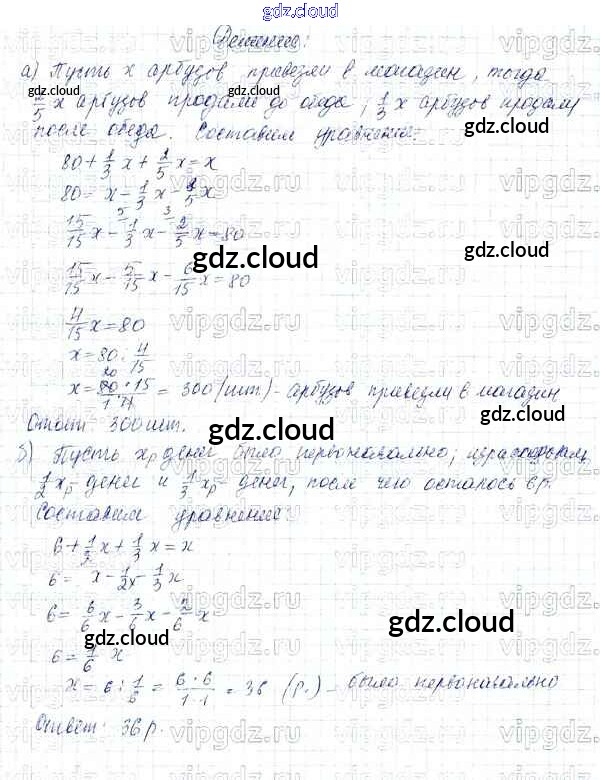 gdz.cloud
Решение:
а) Пусть x арбузов привезли в магазин, тогда
2/5 x арбузов продали до обеда, 1/3 x арбузов продали
после обеда. Составим уравнение:
80 + 1/3 x + 2/5 x = x
80 = x - 1/3 x - 2/5 x
15/15 x - 1/3 x - 2/5 x = 80
15/15 x - 5/15 x - 6/15 x = 80
4/15 x = 80
x = 80 : 4/15
x = 80 · 15 / 1 · 4 = 300 (шт.) - арбузов привезли в магазин
Ответ: 300 шт.
б) Пусть x р денег было первоначально, израсходовали
1/2 x р - денег и 1/3 x р - денег, после чего осталось 6 р.
Составим уравнение:
6 + 1/2 x + 1/3 x = x
6 = x - 1/2 x - 1/3 x
6 = 6/6 x - 3/6 x - 2/6 x
6 = 1/6 x
x = 6 : 1/6 = 6 · 6 / 1 · 1 = 36 (р.) - было первоначально
Ответ: 36 р.